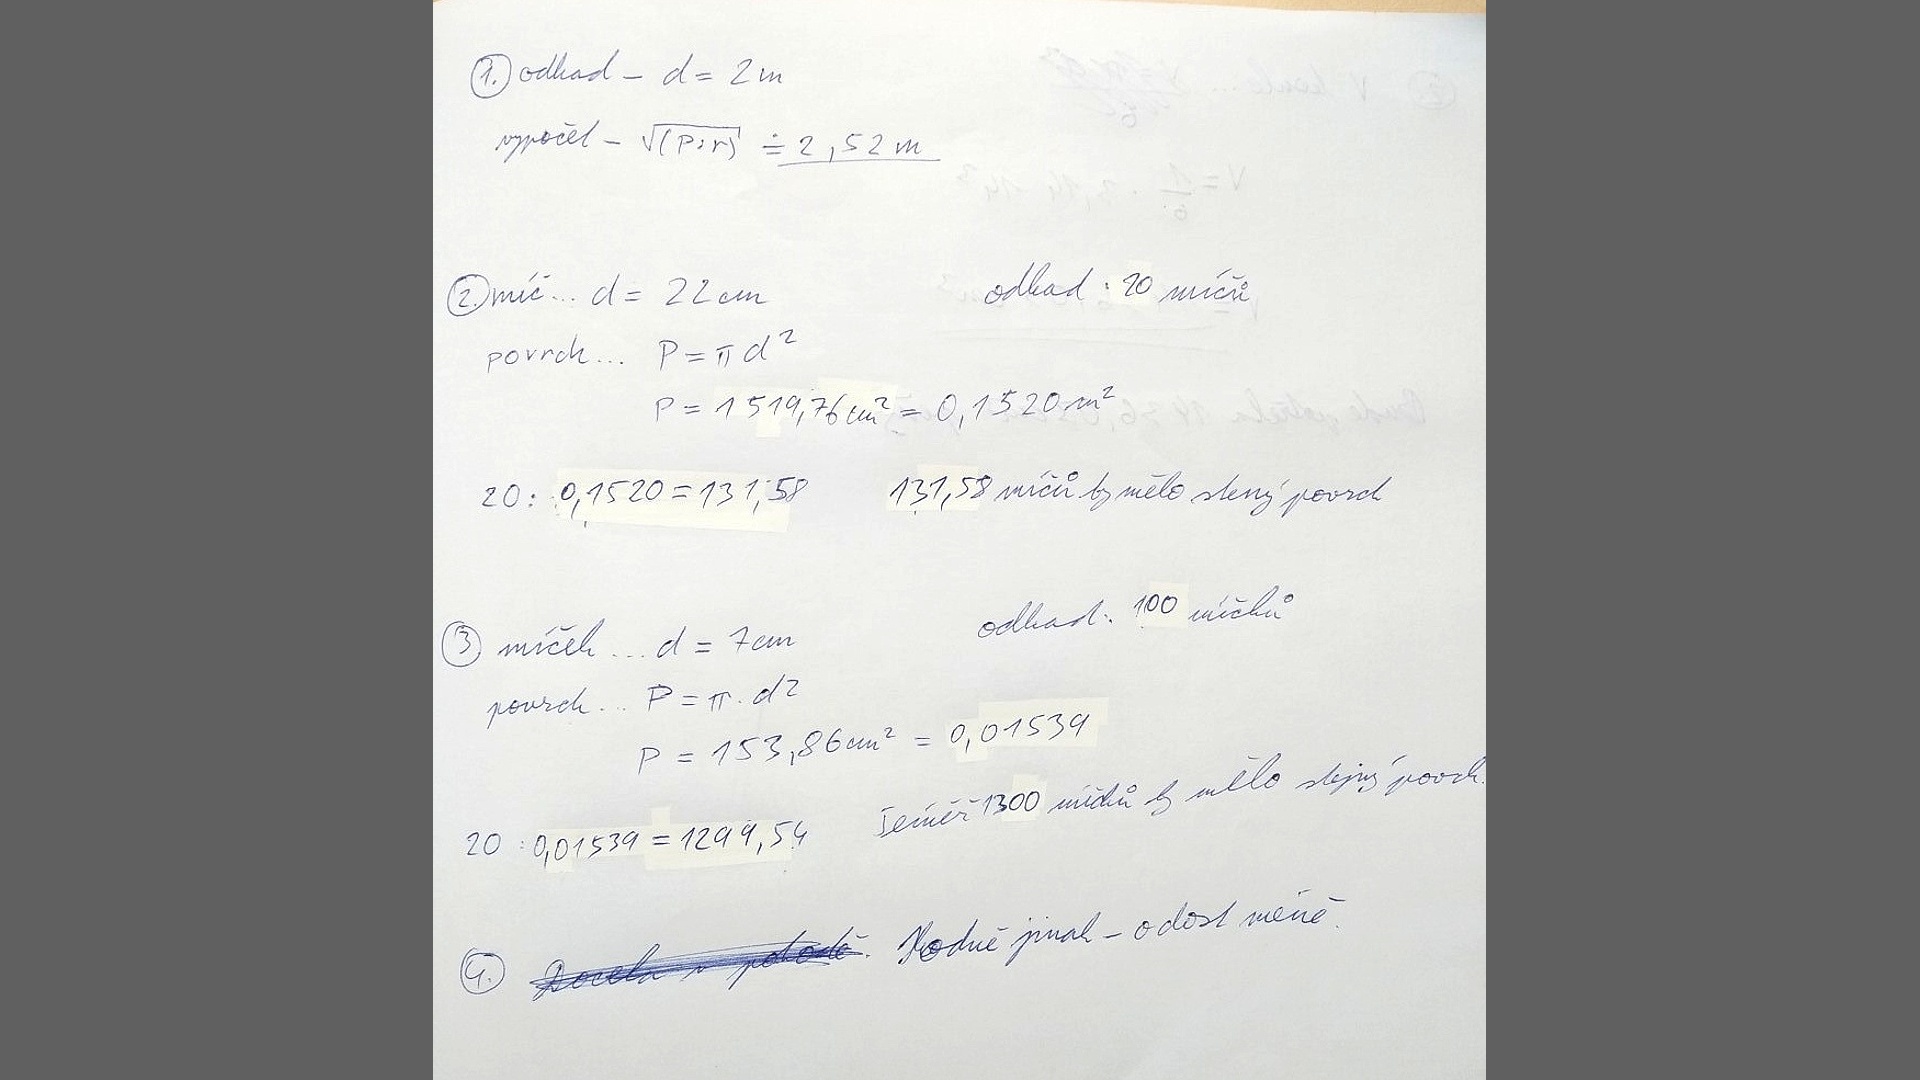 1. odhad – d = 2m
výpočet – √(P:π) ≐ 2,52 m
2. míč... d = 22cm odhad: 20 míčů
povrch... P = π d²
P = 1519,76cm² = 0,1520 m²
20 : 0,1520 = 131,58 131,58 míčů by mělo stejný povrch
3 míček ... d = 7cm odhad: 100 míčků
povrch... P = π . d²
P = 153,86cm² = 0,01539
20 : 0,01539 = 1299,54 Téměř 1300 míčků by mělo stejný povrch.
4. Docela v pohodě. Hodně jinak – o dost méně.